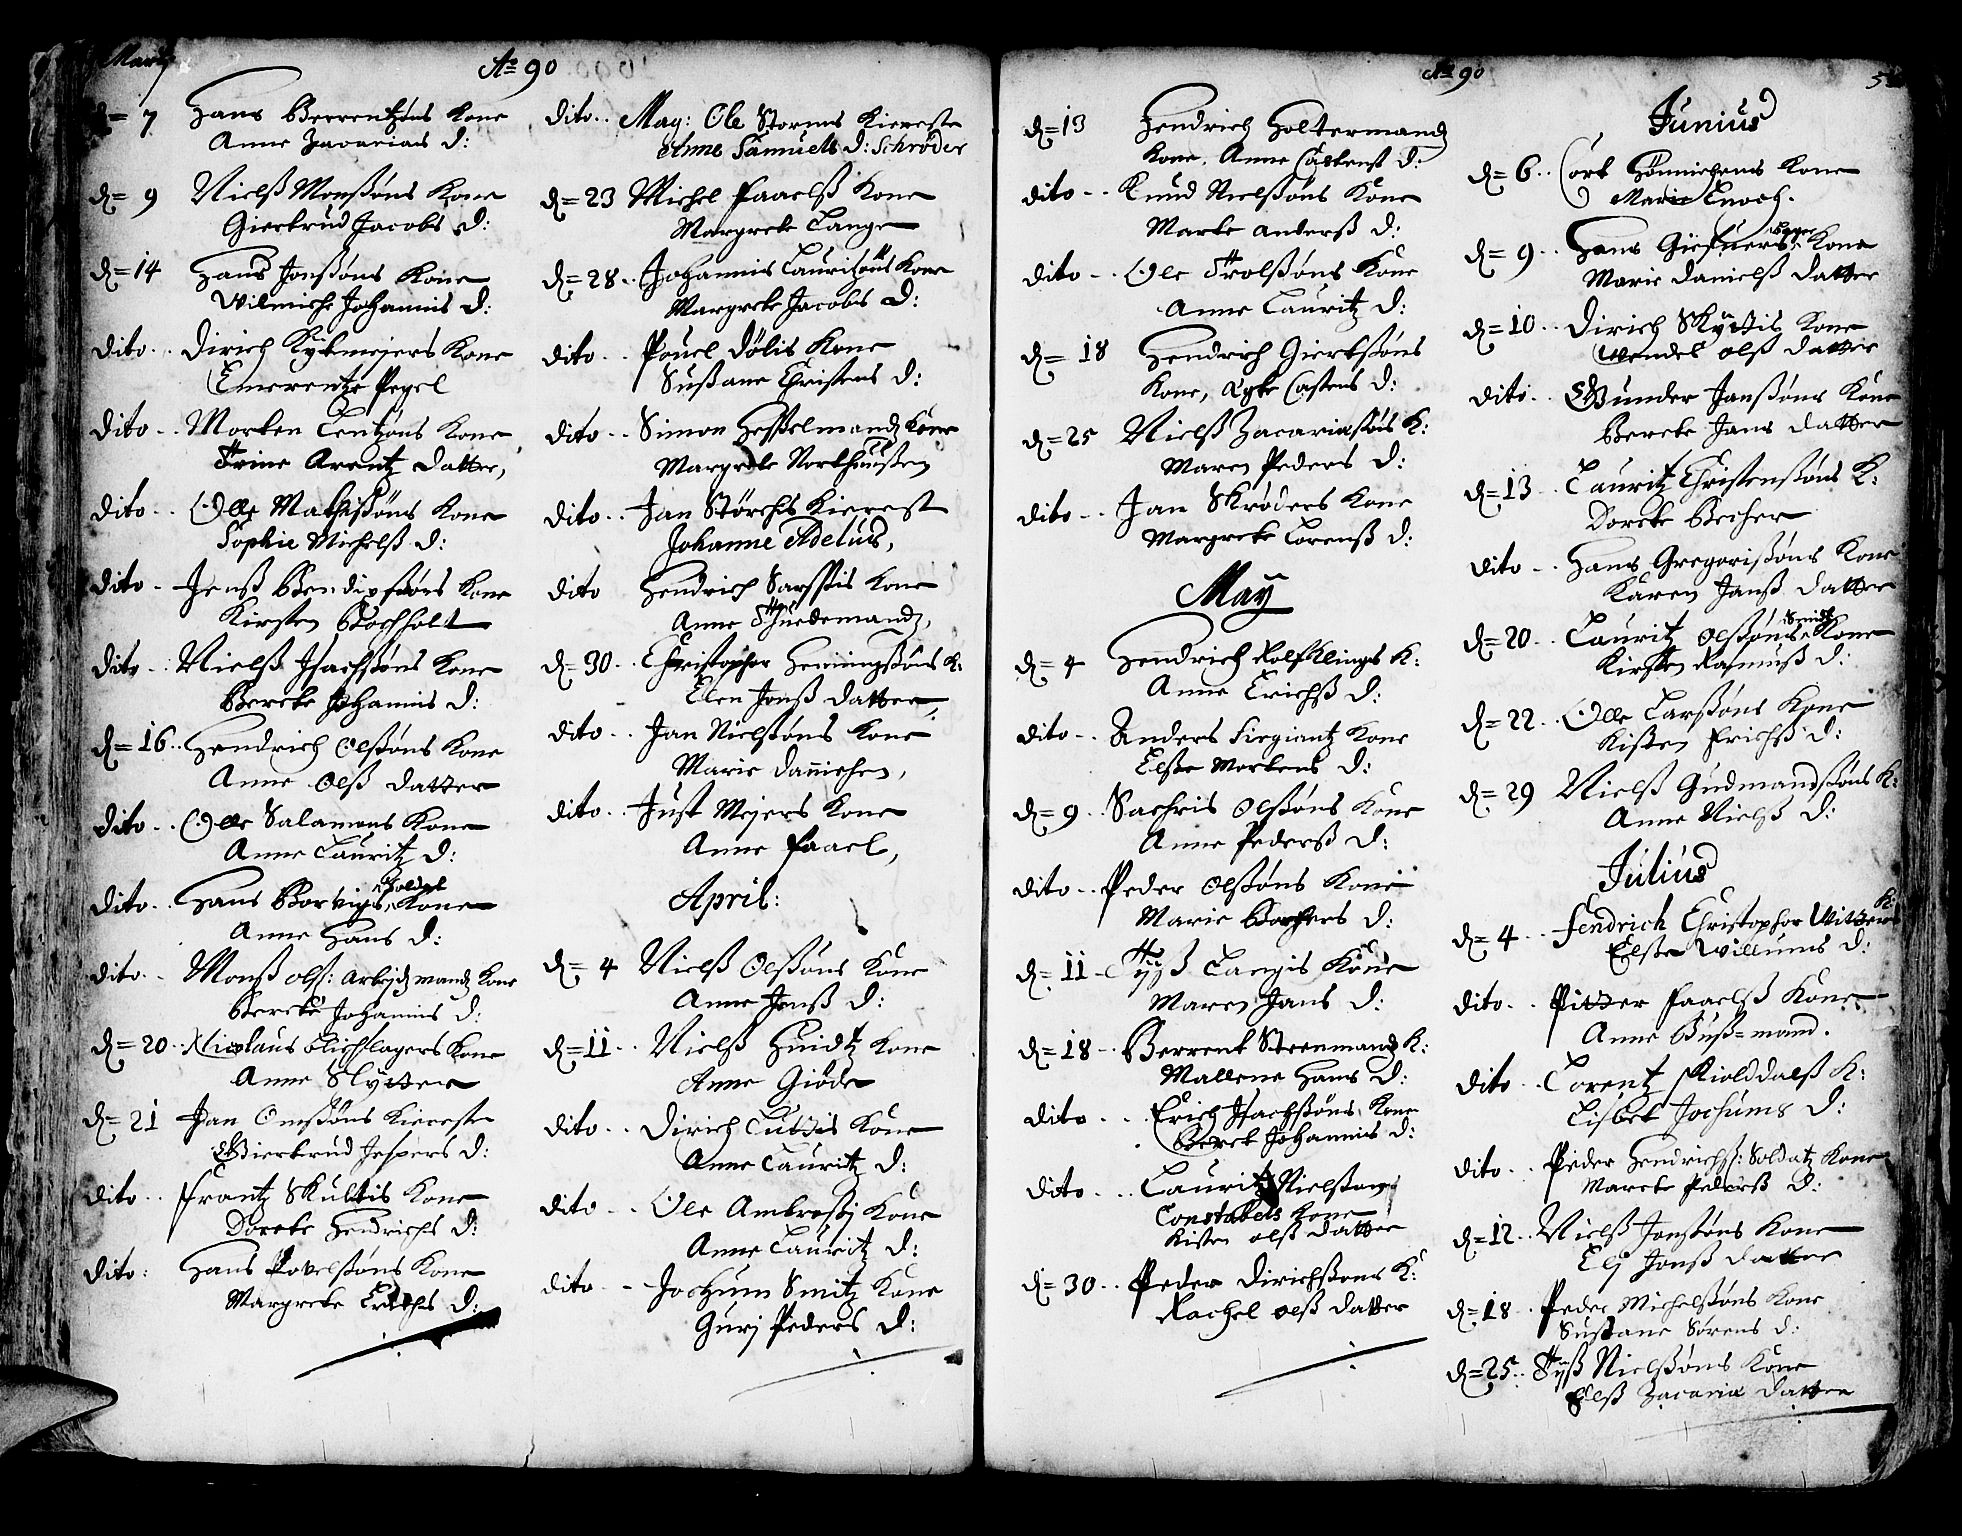 Martj
Ao 90
d= 7 Hans Berrentzøns Kone
Anne Zacarias D:
d= 9 Nielß Monßøns Kone
Giertrud Jacobs D:
d= 14 Hans Jonßøns Kone
Wilmiche Johannis D:
dito .. Dirich Kykmejers Kone
Emerentze Pegel
dito .. Morten Lentzøns Kone
Trine Arentz datter,
dito .. Olle Mathisßøns Kone
Sophie Michelß D:
dito - Jenß Bendixsøns Kone
Kirsten Bochholt
dito .. Nielß Isachsøns Kone
Berete Johannis D:
d= 16 .. Hendrich Olßøns Kone
Anne Olß datter
dito .. Olle Salamons Kone
Anne Lauritz D:
Soldat
dito .. Hans Borvigs Kone
Anne Hans D:
dito .. Monß olß: Arbejdzmandz Kone
Berete Johannis D:
d= 20 .. Nicolaus Blichslagers Kone
Anne Slytter
d= 21 Jan Omsøns Kiereste
Giertrud Jespers D:
dito .. Frantz Skultis Kone
Dorete Hendrichs D:
dito : Hans Povelsøns Kone
Margrete Erichs D:
dito .. May: Ole Storms Kiereste
Anne Samuels D: Schrøder
d= 23 Michel Faaelß Kone
Margrete Lange
d= 28 .. Johannis Lauritzøns Kone
Margrete Jacobs D:
dito .. Povel Dølis Kone
Sußane Christens D:
dito .. Simon Heßelmandz Kone
Margrete Northußen
dito .. Jan Størchs Kierest
Johanne Adelus,
dito Hendrich Kone
Anne
d= 30 .. Christopher Henningsøns K:
Elen Jonß datter,
dito .. Jan Nielsøns Kone
Marie Dannichen,
dito .. Just Mejers Kone
Anne Faael,
April:
d= 4 Nielß Olßøns Kone
Anne Jenß D:
d= 11 .. Nielß Huidtz Kone
Anne Giøde
dito .. Dirich Luttis Kone
Anne Lauritz D:
dito .. Ole Ambrosij Kone
Anne Lauritz D:
dito - Jochum Smitz Kone
Gurj Peders D:
Ao 90
d= 13 Hendrich Holtermandz
Kone, Anne Castenst D:
dito .. Knud Nielßøns Kone
Marte Anderß D:
dito .. Ole Trolßøns Kone
Anne Lauritz D:
d= 18 Hendrich Giertsøns
Kone, Agte Castens D:
d= 25 Nielß Zacariasøns K:
Maren Peders D:
dito .. Jan Skrøders Kone
Margrete Lorenß D:
May
d= 4 Hendrich Rolfklings K:
Anne Erichß D:
dito .. Anders Sirgiantz Kone
Elße Mortens D:
d= 9 .. Sachris Olßøns Kone
Anne Pederß D:
dito .. Peder Olßøns Kone
Marie Borgers D:
d= 11 - Tyß Langis Kone
Maren Jans D:
d= 18 .. Berrent Steenmandz K:
Mallene Hans D:
dito .. Erich Isachsøns Kone
Beret Johannis D:
dito .. Lauritz Nielsøn
Constabels Kone
Kisten olß datter
d= 30 .. Peder Dirichßøns K:
Rachel olß datter
5
Junius
d= 6 .. Cort Hønnichens Kone
Marie Enoch.
d= 9 .. Hans Kone
Marie Danielß datter
d= 10 .. Dirich Skyttis Kone
Wendel olß datter
dito .. Gunder Janßøns Kone
Berete Jans datter
d= 13 .. Lauritz Christensøns K:
Dorete Becher
dito .. Hans Gregorisøns Kone
Karen Janß datter
Smidz
d= 20 .. Lauritz Olßøns Kone
Kirsten Rasmuß D:
d= 22 .. Olle Larßøns Kone
Kisten Erichß D:
d= 29 Nielß Gudmandsøns K:
Anne Nielß D:
Julius
d= 4 .. Fendrich Christopher Witters K:
Elße Willums D:
dito .. Pitter Faaelß Kone
Anne Buß=mand.
dito .. Lorentz Skiolddalß K:
Lisbet Jochums D:
dito .. Peder Hendrichß: Soldatz Kone
Marete Pederß D:
d= 12 .. Nielß Jonsøns Kone
Elj Jonß datter
d= 18 .. Peder Michelßøns Kone
Sußane Sørens D:
d= 25 .. Tyß Nielßøns Kone
Elß Zacaria datter